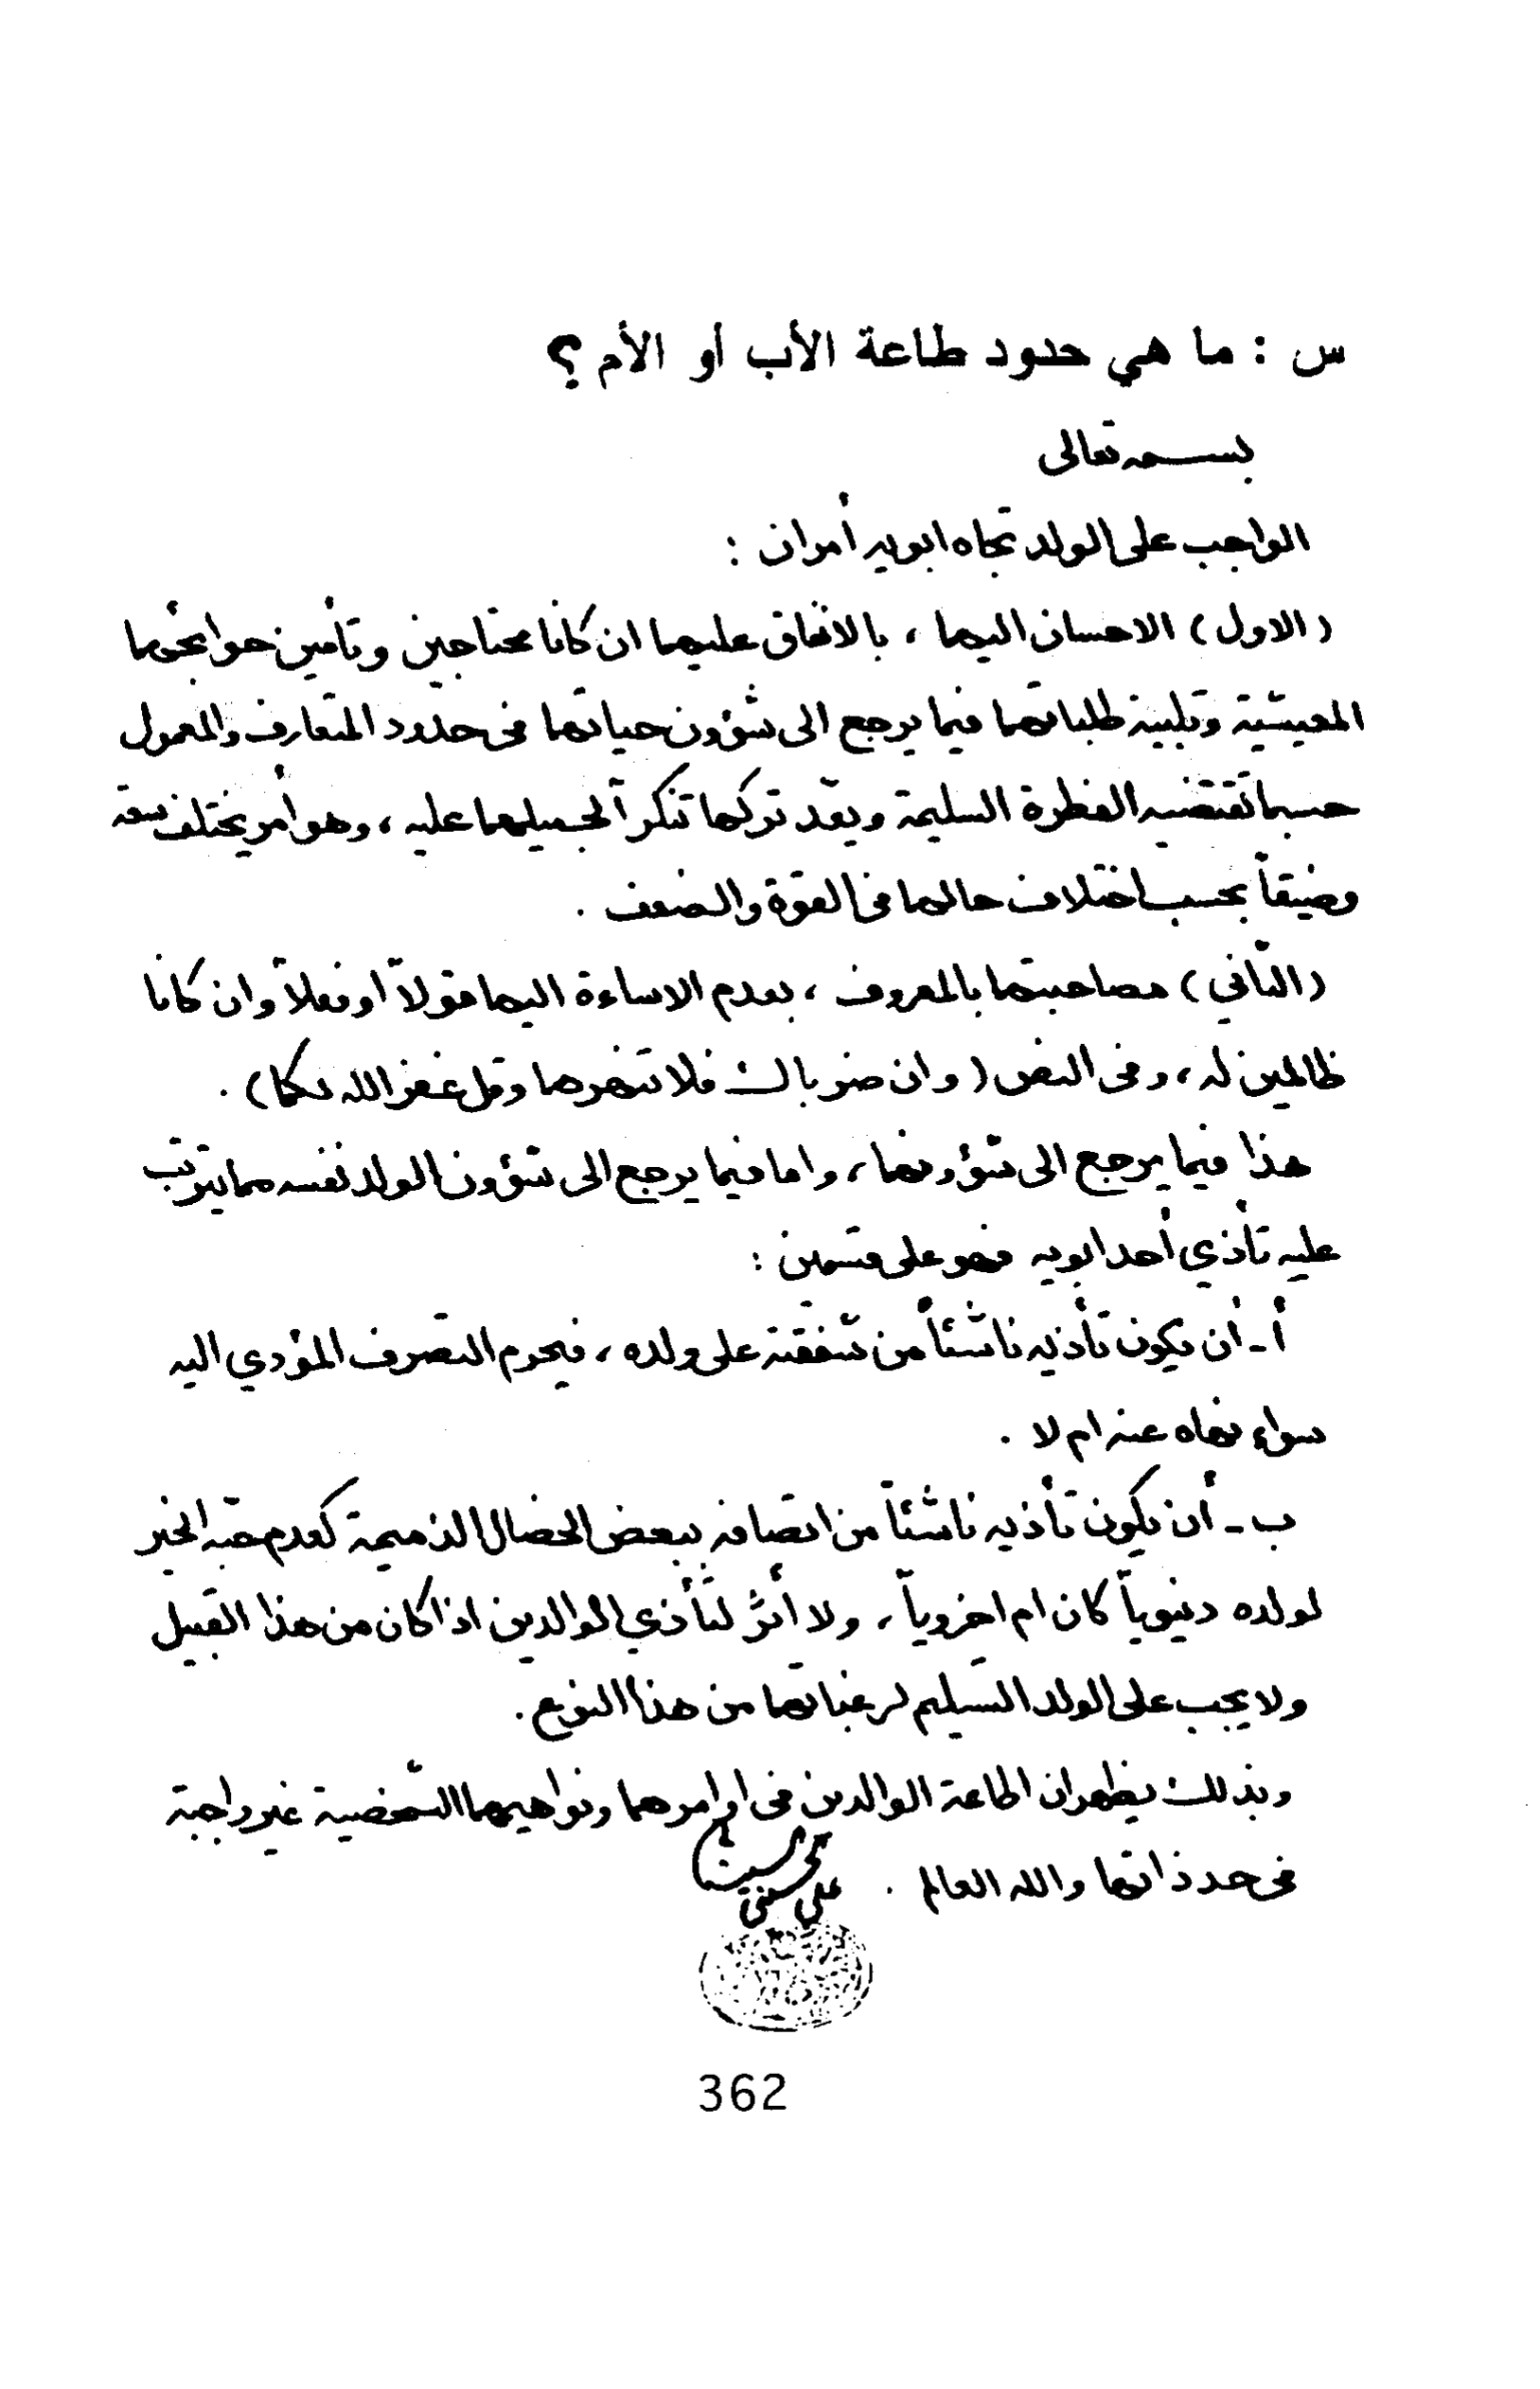 س : ما هي حدود طاعة الأب أو الأم ؟
بسمه تعالى
الواجب على الولد تجاه ابويه أمران :
(الاول) الاحسان اليهما ، بالانفاق عليهما ان كانا محتاجين وتأمين حوائجهما
المعيشية وتلبية طلباتهما فيما يرجع الى شؤون حياتهما في حدود المتعارف والمعمول
حسبما تقتضيه الفطرة السليمة ويعدّ تركها تنكراً لجميلهما عليه ، وهو أمر يختلف سعة
وضيقاً بحسب اختلاف حالهما في القوة والضعف .
(الثاني) مصاحبتهما بالمعروف ، بعدم الاساءة اليهما قولاً او فعلاً وان كانا
ظالمين له ، وفي النص (وان ضرباك فلا تنهرهما وقل غفر الله لكما) .
هذا فيما يرجع الى شؤونهما ، واما فيما يرجع الى شؤون الولد نفسه مما يترتب
عليه تأذي أحد ابويه فهو على قسمين :
أ - أن يكون تأذيه ناشئاً من شفقته على ولده ، فيحرم التصرف المؤدي اليه
سواء نهاه عنه ام لا .
ب - أن يكون تأذيه ناشئاً من اتصافه ببعض الخصال الذميمة كعدم حبّه الخير
لولده دنيوياً كان ام اخروياً ، ولا أثر لتأذي الوالدين اذا كان من هذا القبيل
ولا يجب على الولد التسليم لرغباتهما من هذا النوع .
وبذلك يظهر ان اطاعة الوالدين في اوامرهما ونواهيهما الشخصية غير واجبة
في حد ذاتها والله العالم .
علي الحسيني
362